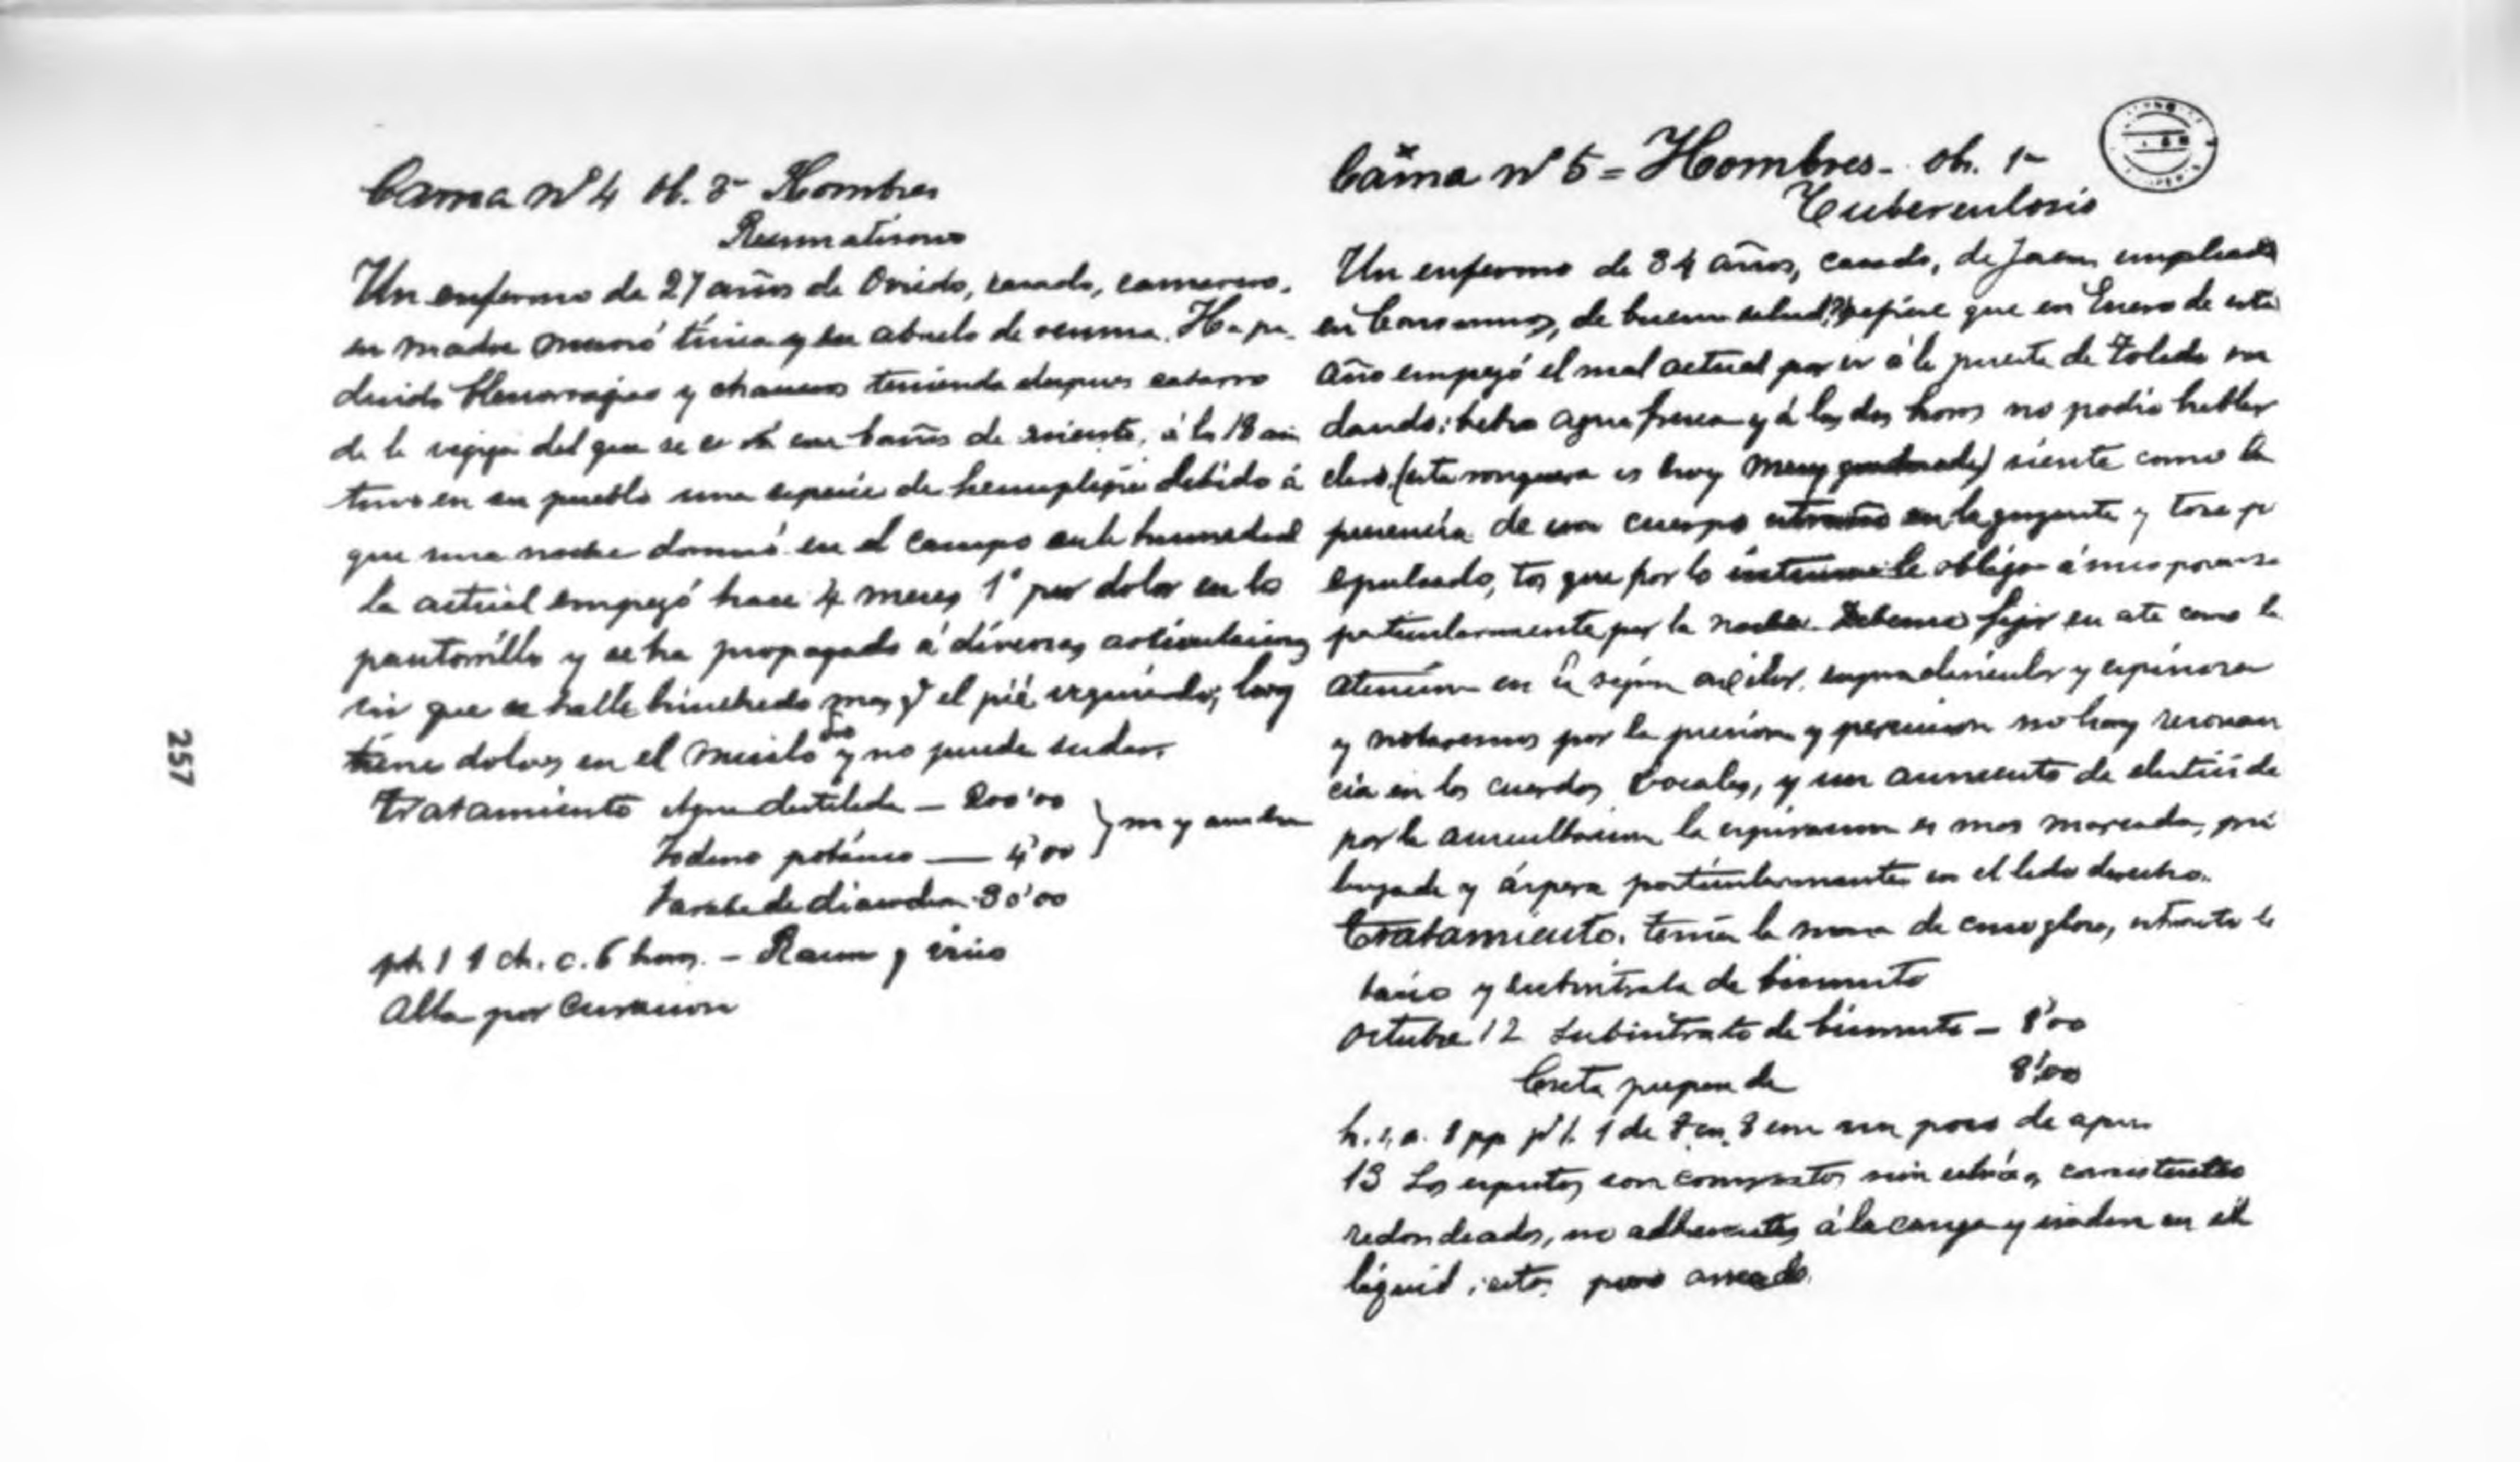 Cama nº 4 Ob. 3ª Hombres
Reumatismo
Un enfermo de 27 años de Oviedo, casado, camarero.
su madre murió tísica y su abuelo de reuma. Ha pa-
decido blenorragias y chancros teniendo despues catarro
de la vejiga del que se curó con baños de asiento, á los 18 añ
tuvo en su pueblo una especie de hemiplegia debido á
que una noche durmió en el campo en la humedad
la actual empezó hace 4 meses 1º por dolor en la
pantorrilla y se ha propagado á diversas articulaciones
sin que se halle hinchado mas q el pié izquierdo; hoy
tiene dolores en el muslo dro y no puede sudar.
Tratamiento Agua destilada — 200'00
Ioduro potásico — 4'00 } m y
Jarabe de diacodion - 30'00
pt. 1 ch. c. 6 horas. - Racion y vino
Alta por curacion
Cama nº 5 = Hombres - ob. 1ª
Tuberculosis
Un enfermo de 34 años, casado, de Jaen, empleado
en Consumos, de buena salud, refiere que en Enero de este
año empezó el mal actual por ir á la puente de Toledo su
dando; bebio agua fresca y á las dos horas no podia hablar
claro (esta ronquera es hoy muy graduada) siente como la
presencia de un cuerpo extraño en la garganta y tose pª
expulsado, tos que por lo intensa le obliga á incorporarse
particularmente por la noche. Debemos fijar en este caso la
atención en la región axilar, supraclavicular y espinosa
y notaremos por la presion y percusion no hay resonan
cia en las cuerdas vocales, y un aumento de elasticidad
por la auscultacion la espiracion es mas marcada, pro
longada y áspera particularmente en el lado derecho.
Tratamiento. Tenía la de cinoglosa, extracto te
baico y subnitrato de bismuto
Octubre 12 Subnitrato de bismuto — 8'00
Creta preparada 8'00
h. s. a. 8 pp pª t. 1 de 3 en 3 con un poco de agua
13 Los esputos son compactos sin estrías, consistentes
redondeados, no adherentes á la y nadan en el
liquido; estos poco aireado.
257